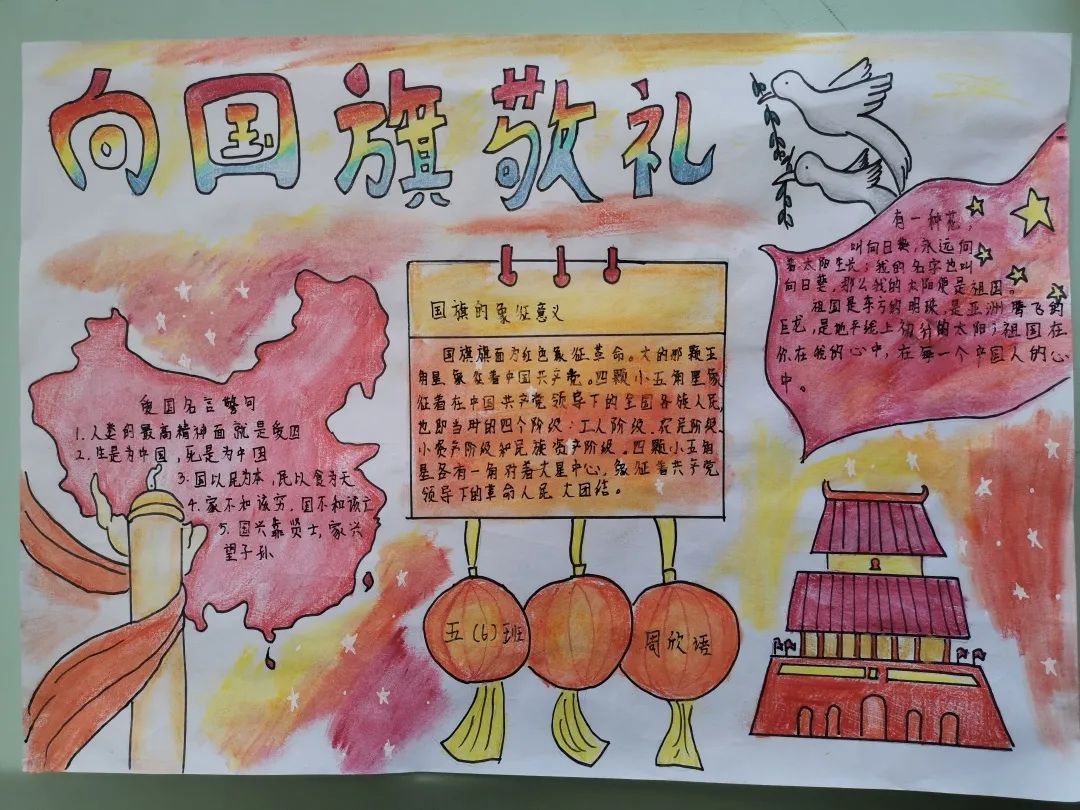 向国旗敬礼
有一种花，
叫向日葵，永远向
着太阳生长；我的名字也叫
向日葵，那么我的太阳便是祖国。
祖国是东方的明珠，是亚洲腾飞的
巨龙，是地平线上初升的太阳；祖国在
你在我的心中，在每一个中国人的心
中。
国旗的象征意义
国旗旗面为红色象征革命。大的那颗五
角星象征着中国共产党。四颗小五角星象
征着在中国共产党领导下的全国各族人民，
也即当时的四个阶级：工人阶级、农民阶级、
小资产阶级和民族资产阶级。四颗小五角
星各有一角对着大星中心，象征着共产党
领导下的革命人民大团结。
爱国名言警句
1.人类的最高精神面就是爱国
2.生是为中国，死是为中国
3.国以民为本，民以食为天
4.家不和该穷，国不和该亡
5.国兴靠贤士，家兴
望子孙
五（6）班
周欣语